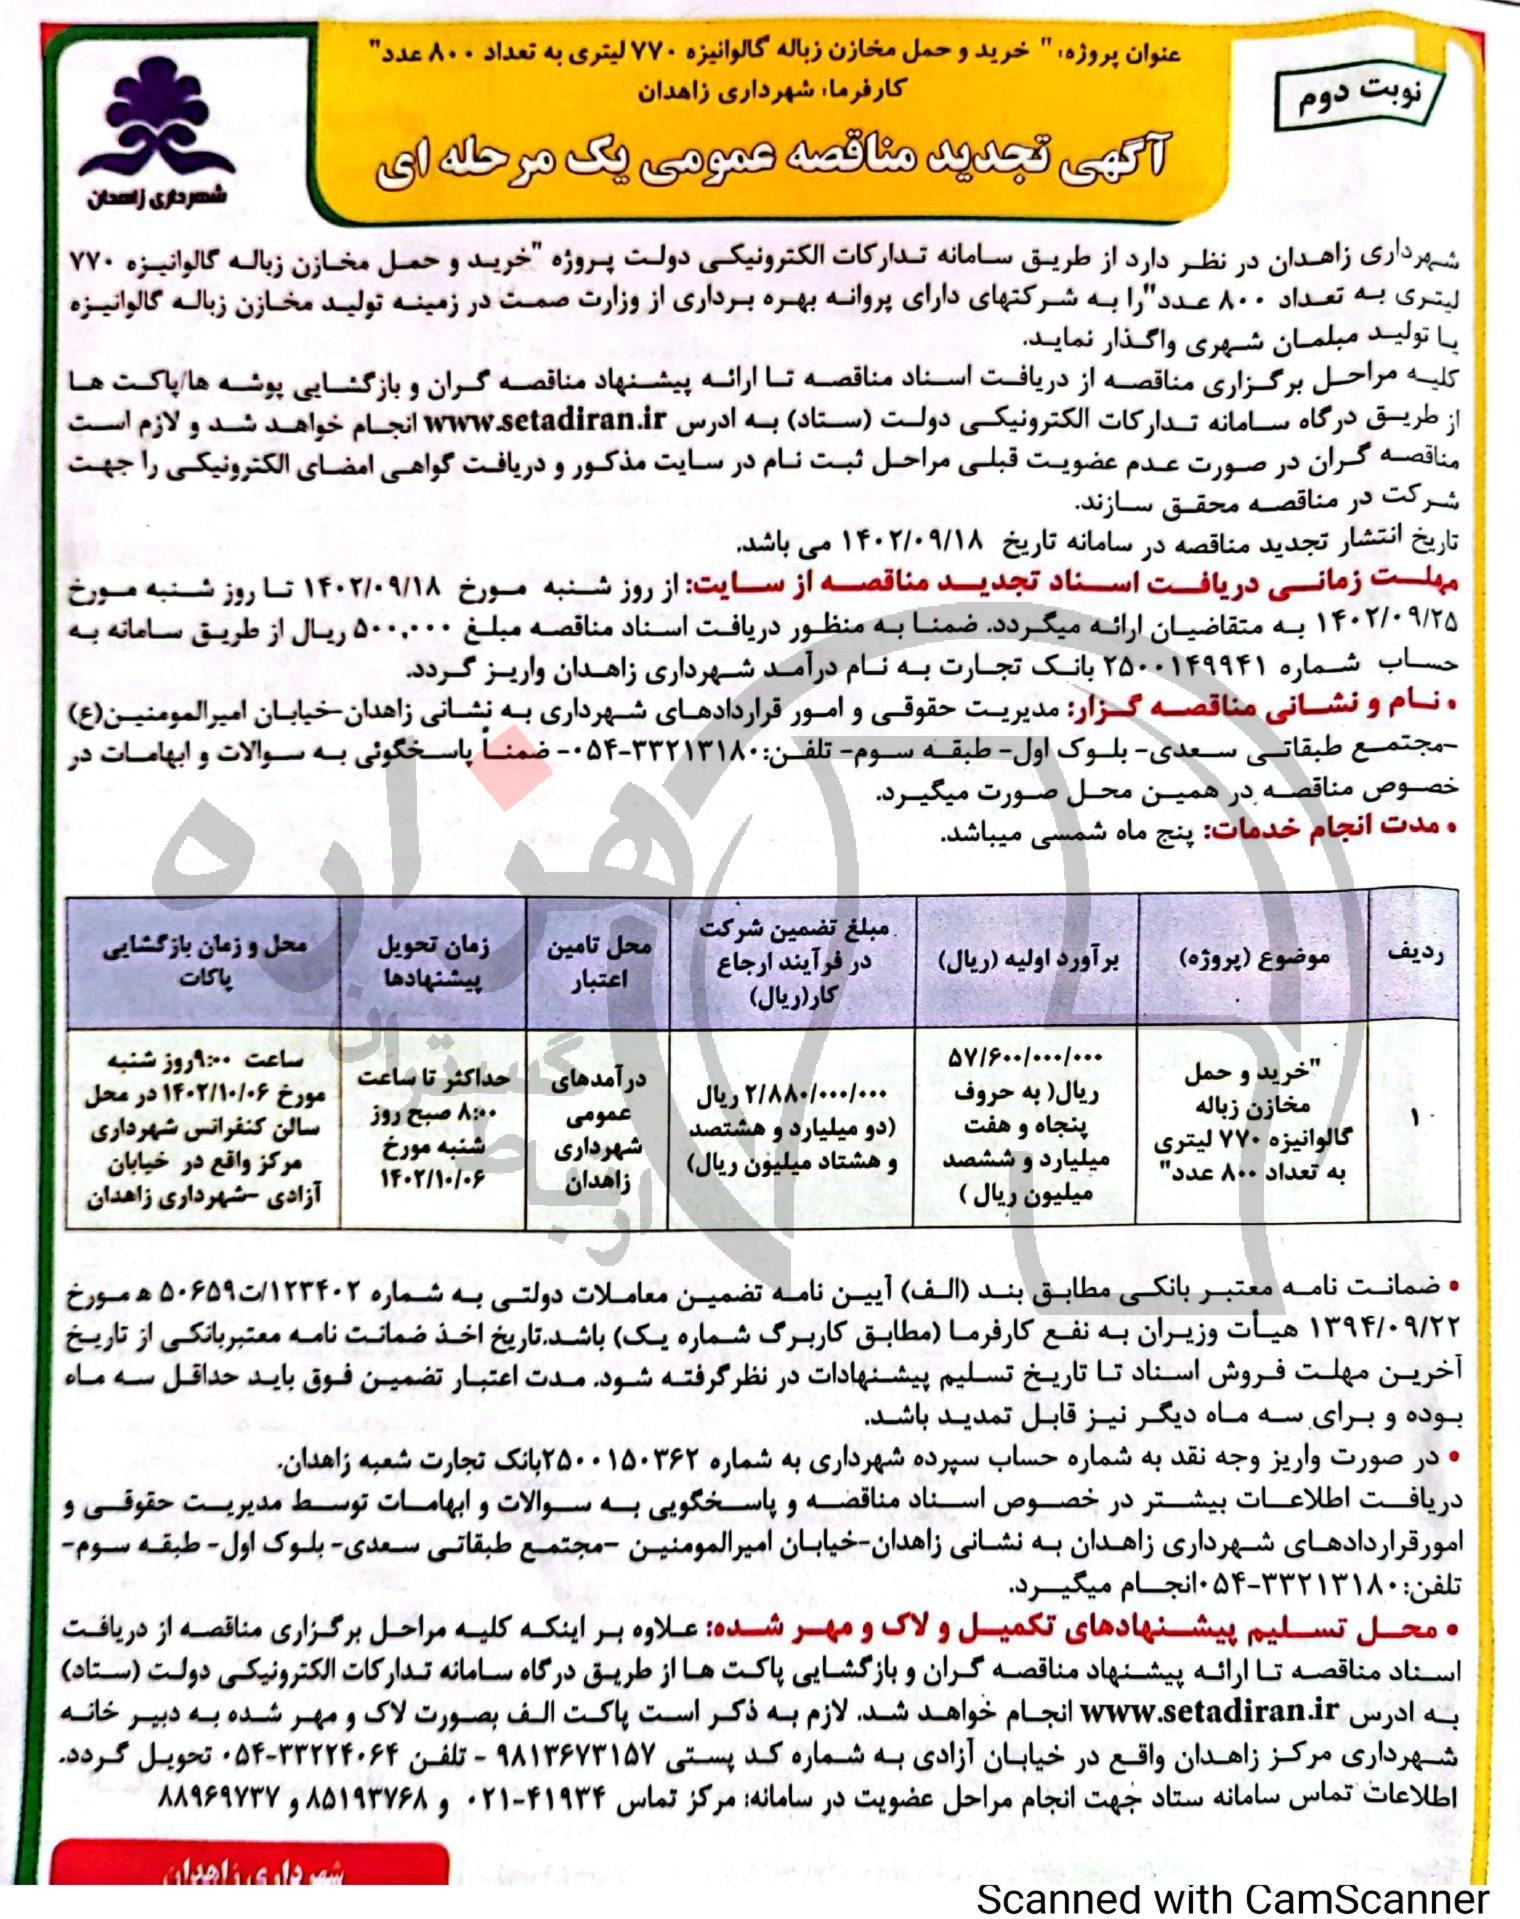 عنوان پروژه: " خرید و حمل مخازن زباله گالوانیزه ۷۷۰ لیتری به تعداد ۸۰۰ عدد"
کارفرما: شهرداری زاهدان
نوبت دوم
آگهی تجدید مناقصه عمومی یک مرحله ای
شهرداری زاهدان
شهرداری زاهدان در نظر دارد از طریق سامانه تدارکات الکترونیکی دولت پروژه "خرید و حمل مخازن زباله گالوانیزه ۷۷۰
لیتری به تعداد ۸۰۰ عدد"را به شرکتهای دارای پروانه بهره برداری از وزارت صمت در زمینه تولید مخازن زباله گالوانیزه
یا تولید مبلمان شهری واگذار نماید.
کلیه مراحل برگزاری مناقصه از دریافت اسناد مناقصه تا ارائه پیشنهاد مناقصه گران و بازگشایی پوشه ها/پاکت ها
از طریق درگاه سامانه تدارکات الکترونیکی دولت (ستاد) به ادرس www.setadiran.ir انجام خواهد شد و لازم است
مناقصه گران در صورت عدم عضویت قبلی مراحل ثبت نام در سایت مذکور و دریافت گواهی امضای الکترونیکی را جهت
شرکت در مناقصه محقق سازند.
تاریخ انتشار تجدید مناقصه در سامانه تاریخ ۱۴۰۲/۰۹/۱۸ می باشد.
مهلت زمانی دریافت اسناد تجدید مناقصه از سایت: از روز شنبه مورخ ۱۴۰۲/۰۹/۱۸ تا روز شنبه مورخ
۱۴۰۲/۰۹/۲۵ به متقاضیان ارائه میگردد. ضمنا به منظور دریافت اسناد مناقصه مبلغ ۵۰۰,۰۰۰ ریال از طریق سامانه به
حساب شماره ۲۵۰۰۱۴۹۹۴۱ بانک تجارت به نام درآمد شهرداری زاهدان واریز گردد.
• نام و نشانی مناقصه گزار: مدیریت حقوقی و امور قراردادهای شهرداری به نشانی زاهدان-خیابان امیرالمومنین(ع)
-مجتمع طبقاتی سعدی- بلوک اول- طبقه سوم- تلفن:۳۳۲۱۳۱۸۰-۰۵۴- ضمناً پاسخگوئی به سوالات و ابهامات در
خصوص مناقصه در همین محل صورت میگیرد.
• مدت انجام خدمات: پنج ماه شمسی میباشد.
هزاره
گسترش
ارتباط
ردیف
موضوع (پروژه)
برآورد اولیه (ریال)
مبلغ تضمین شرکت
در فرآیند ارجاع
کار(ریال)
محل تامین
اعتبار
زمان تحویل
پیشنهادها
محل و زمان بازگشایی
پاکات
۱
"خرید و حمل
مخازن زباله
گالوانیزه ۷۷۰ لیتری
به تعداد ۸۰۰ عدد"
۵۷/۶۰۰/۰۰۰/۰۰۰
ریال( به حروف
پنجاه و هفت
میلیارد و ششصد
میلیون ریال )
۲/۸۸۰/۰۰۰/۰۰۰ ریال
(دو میلیارد و هشتصد
و هشتاد میلیون ریال)
درآمدهای
عمومی
شهرداری
زاهدان
حداکثر تا ساعت
۸:۰۰ صبح روز
شنبه مورخ
۱۴۰۲/۱۰/۰۶
ساعت ۹:۰۰روز شنبه
مورخ ۱۴۰۲/۱۰/۰۶ در محل
سالن کنفرانس شهرداری
مرکز واقع در خیابان
آزادی -شهرداری زاهدان
• ضمانت نامه معتبر بانکی مطابق بند (الف) آیین نامه تضمین معاملات دولتی به شماره ۱۲۳۴۰۲/ت۵۰۶۵۹ ه مورخ
۱۳۹۴/۰۹/۲۲ هیأت وزیران به نفع کارفرما (مطابق کاربرگ شماره یک) باشد.تاریخ اخذ ضمانت نامه معتبربانکی از تاریخ
آخرین مهلت فروش اسناد تا تاریخ تسلیم پیشنهادات در نظرگرفته شود. مدت اعتبار تضمین فوق باید حداقل سه ماه
بوده و برای سه ماه دیگر نیز قابل تمدید باشد.
• در صورت واریز وجه نقد به شماره حساب سپرده شهرداری به شماره ۲۵۰۰۱۵۰۳۶۲بانک تجارت شعبه زاهدان.
دریافت اطلاعات بیشتر در خصوص اسناد مناقصه و پاسخگویی به سوالات و ابهامات توسط مدیریت حقوقی و
امورقراردادهای شهرداری زاهدان به نشانی زاهدان-خیابان امیرالمومنین -مجتمع طبقاتی سعدی- بلوک اول- طبقه سوم-
تلفن:۳۳۲۱۳۱۸۰-۰۵۴انجام میگیرد.
• محل تسلیم پیشنهادهای تکمیل و لاک و مهر شده: علاوه بر اینکه کلیه مراحل برگزاری مناقصه از دریافت
اسناد مناقصه تا ارائه پیشنهاد مناقصه گران و بازگشایی پاکت ها از طریق درگاه سامانه تدارکات الکترونیکی دولت (ستاد)
به ادرس www.setadiran.ir انجام خواهد شد. لازم به ذکر است پاکت الف بصورت لاک و مهر شده به دبیر خانه
شهرداری مرکز زاهدان واقع در خیابان آزادی به شماره کد پستی ۹۸۱۳۶۷۳۱۵۷ - تلفن ۳۳۲۲۴۰۶۴-۰۵۴ تحویل گردد.
اطلاعات تماس سامانه ستاد جهت انجام مراحل عضویت در سامانه: مرکز تماس ۴۱۹۳۴-۰۲۱ و ۸۵۱۹۳۷۶۸ و ۸۸۹۶۹۷۳۷
شهرداری زاهدان
Scanned with CamScanner